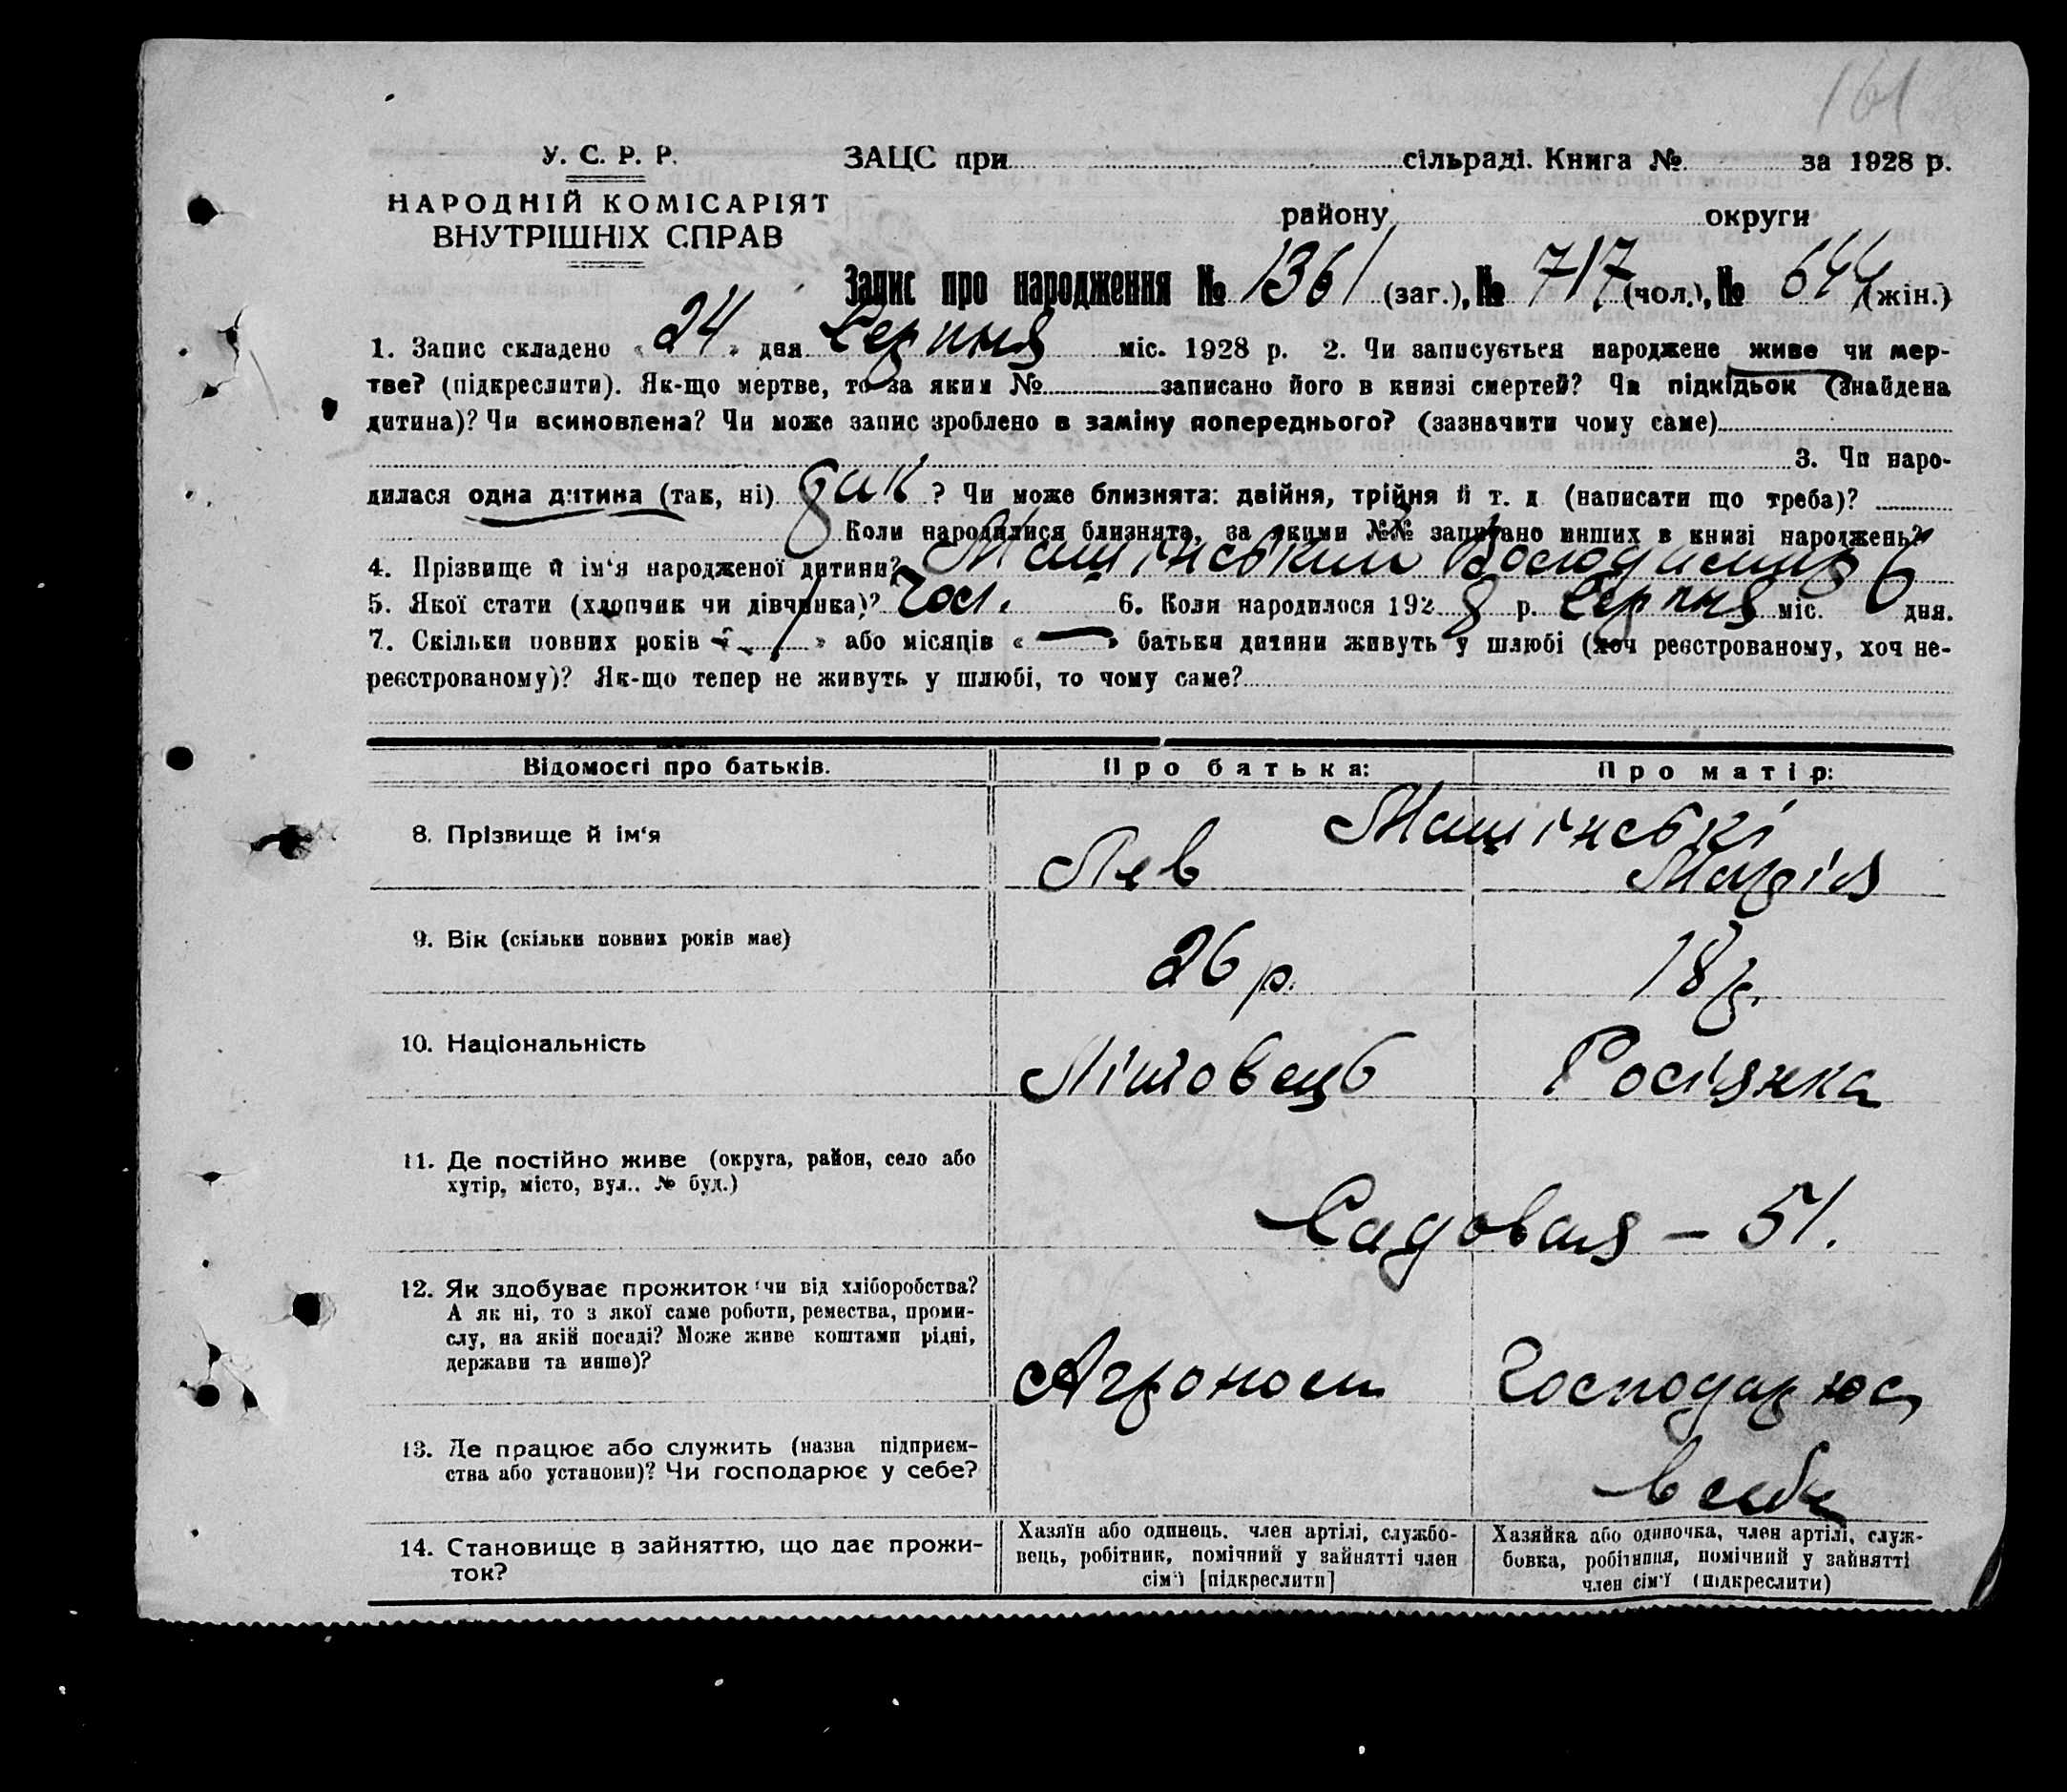 161
У. С. Р. Р.
ЗАЦС при сільраді. Книга № за 1928 р.
НАРОДНІЙ КОМІСАРІЯТ
ВНУТРІШНІХ СПРАВ
району округи
Запис про народження № 1361 (заг.), № 717 (чол.), № 644 (жін.)
1. Запис складено « 24 » дня Серпня міс. 1928 р. 2. Чи записується народжене живе чи мер-
тве? (підкреслити). Як-що мертве, то за яким № записано його в книзі смертей? Чи підкідьок (знайдена
дитина)? Чи всиновлена? Чи може запис зроблено в заміну попереднього? (зазначити чому саме)
3. Чи наро-
дилася одна дитина (так, ні) так ? Чи може близнята: двійня, трійня й т. д (написати що треба)?
Коли народилися близнята, за якими №№ записано инших в книзі народжень?
4. Прізвище й ім'я народженої дитини? Володимир
5. Якої стати (хлопчик чи дівчинка)? Чол. 6. Коли народилося 1928 р. Серпня міс. 6 дня.
7. Скільки повних років « 1 » або місяців « — » батьки дитини живуть у шлюбі (хоч реєстрованому, хоч не-
реєстрованому)? Як-що тепер не живуть у шлюбі, то чому саме?
Відомості про батьків. Про батька: Про матір:
8. Прізвище й ім'я Лев Марія
9. Вік (скільки повних років має) 26 р. 18 р.
10. Національність Літовець Росіянка
11. Де постійно живе (округа, район, село або
хутір, місто, вул.. № буд.)
Садовая – 51.
12. Як здобуває прожиток чи від хліборобства?
А як ні, то з якої саме роботи, ремества, проми-
слу, на якій посаді? Може живе коштами рідні,
держави та инше)?
Агроном Господарює
13. Де працює або служить (назва підприєм-
ства або установи)? Чи господарює у себе?
в себе
14. Становище в зайняттю, що дає прожи-
ток?
Хазяїн або одинець, член артілі, службо-
вець, робітник, помічний у зайнятті член
сім'ї [підкреслити]
Хазяйка або одиночка, член артілі, служ-
бовка, робітниця, помічний у зайнятті
член сім'ї (підкреслити)